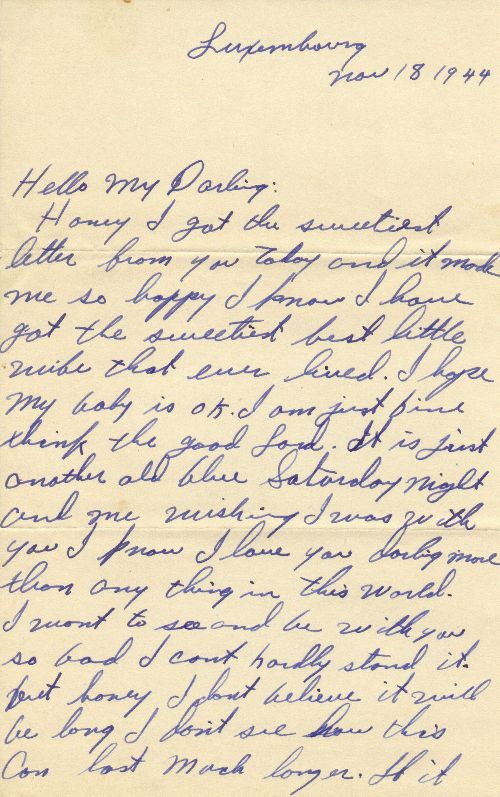 Luxembourg
Nov 18 1944
Hello My Darling:
Honey I got the sweetiest
letter from you today and it made
me so happy I know I have
got the sweetiest best little
wife that ever lived. I hope
my baby is ok. I am just fine
think the good Lord. It is just
another old blue Saturday night
and me wishing I was with
you I know I love you darlig more
than any thing in this world.
I want to see and be with you
so bad I cant hardly stand it.
but honey I dont believe it will
be long I don't see how this
Can last much longer. If it